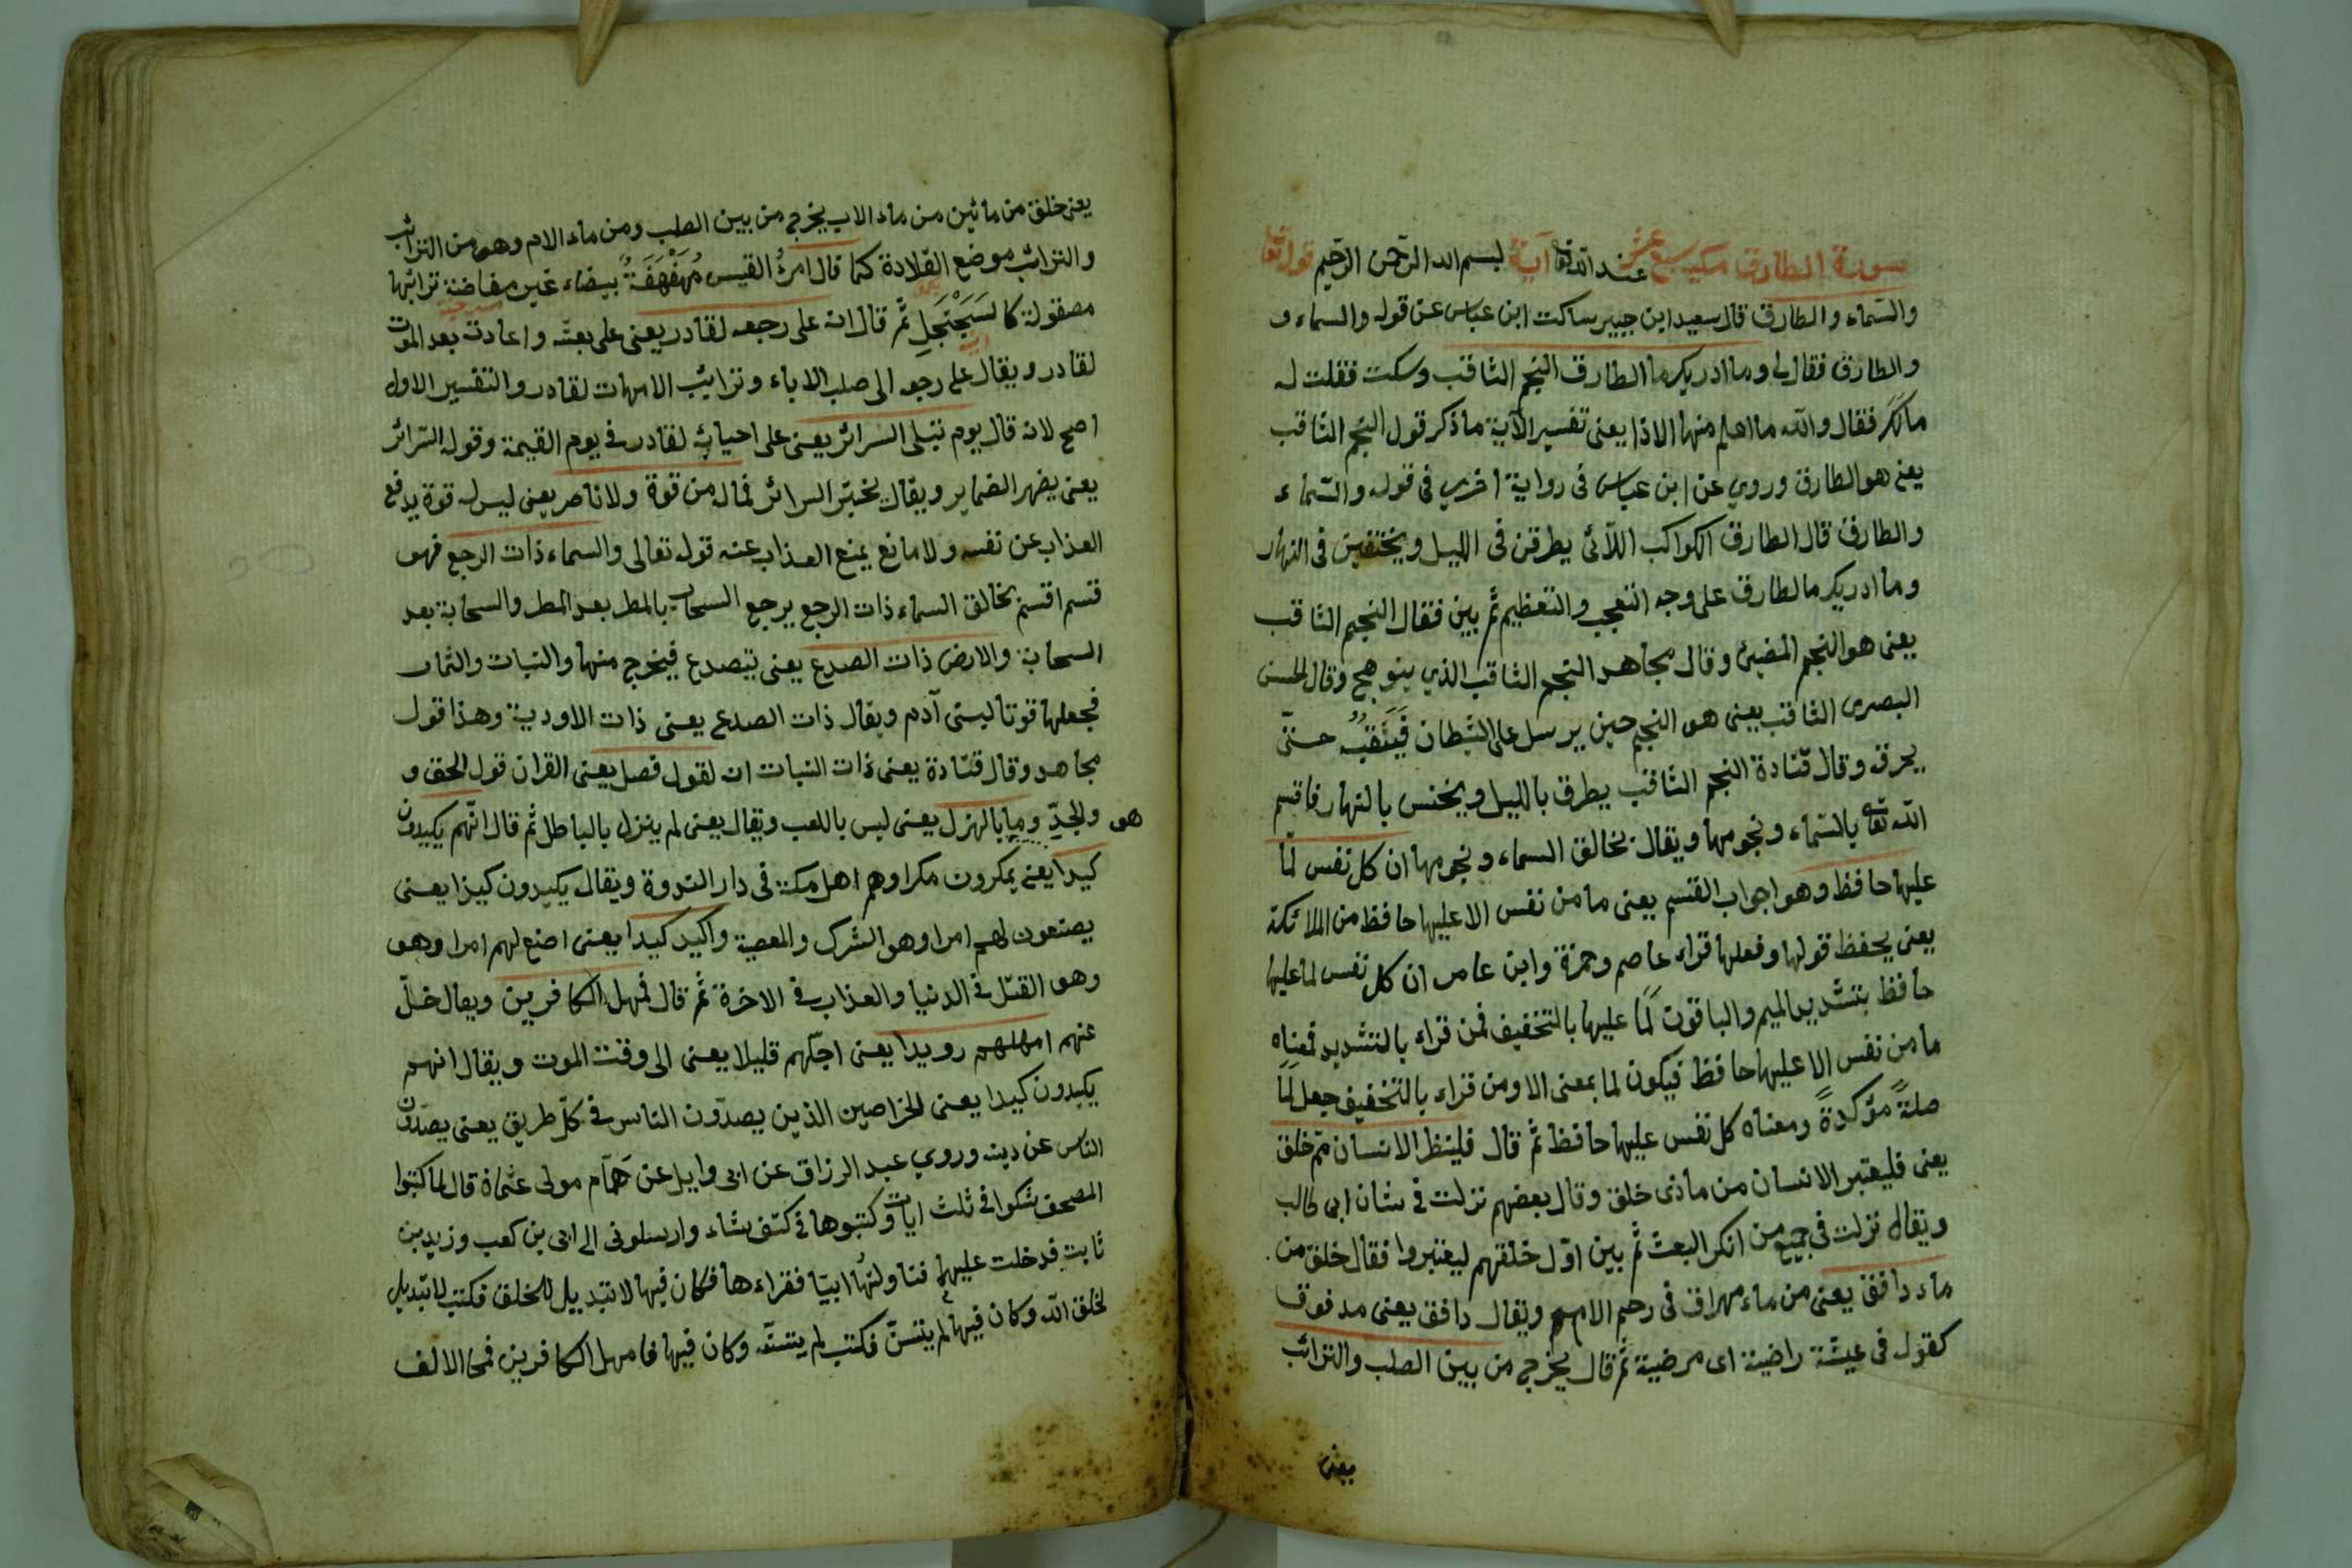 سورة الطارق مكية سبع عشر عند الله تعا آية بسم الله الرحمن الرحيم قوله تعا
والسماء والطارق قال سعيد ابن جبير ساكت ابن عباس عن قوله والسماء و
والطارق فقال لى وما ادريك ما الطارق النجم الثاقب وسكت فقلت له
مالك فقال والله ما اعلم منها الا ذا يعنى تفسير الآية ما ذكر قول النجم الثاقب
يعنى هو الطارق وروي عن ابن عباس فى رواية اخرى فى قوله والسماء
والطارق قال الطارق الكواكب اللآئى يطرقن فى الليل ويختفين فى النهار
وما ادريك مالطارق على وجه التعجب والتعظيم ثم بين فقال النجم الثاقب
يعنى هو النجم المضيئ وقال مجاهد النجم الثاقب الذي يتوهج وقال الحسن
البصرى الثاقب يعنى هو النجم حين يرسل على الشطان فَيَثْقُبُه حتى
يحرق وقال قتادة النجم الثاقب يطرق بالليل ويخنس بالنهار فاقسم
الله تعا بالسماء ونجومها ويقال بخالق السماء ونجومها ان كل نفس لما
عليها حافظ وهو اجواب القسم يعنى ما من نفس الا عليها حافظ من الملائكة
يعنى يحفظ قولها وفعلها قراء عاصم وحمزة وابن عامر ان كل نفس لما عليها
حافظ بتشديد الميم والباقون لَمَا عليها بالتخفيف فمن قراء بالتشديد فمعناه
ما من نفس الا عليها حافظ فيكون لما بمعنى الا ومن قراء بالتخفيف جعل لَمَا
صلةً مؤكدةً ومعناه كل نفس عليها حافظ ثم قال فلينظر الانسان مم خلق
يعنى فليعتبر الانسان من ماذى خلق وقال بعضهم نزلت فى شان ابى طالب
ويقال نزلت فى جميع من انكر البعث ثم بين اول خلقهم ليعتبروا فقال خلق من
ماء دافق يعنى من ماء مهراق فى رحم الام ويقال دافق يعنى مدفوق
كقوله فى عيشة راضية اى مرضية ثم قال يخرج من بين الصلب والترائب
يعنى
يعنى خلق من مائين من ماء الاب يخرج من بين الصلب ومن ماء الام وهو من الترائب
والترائب موضع القلادة كما قال امرؤ القيس مُهَفْهَفَةٌ بيضاء غير مفاضة ترائبها
مصقولة كالسَجَنْجَلِ ثم قال انه على رجعه لقادر يعنى على بعثه واعادته بعد الموت
لقادر ويقال على رجعه الى صلب الاباء وترايئب الامهات لقادر والتفسير الاول
اصح لانه قال يوم تبلى السرائر يعنى على احيائه لقادر فى يوم القيمة وقوله السرائر
يعنى يضهر الضماير ويقال يختبر السرائر فماله من قوة ولا ناصر يعنى ليس له قوة يدفع
العذاب عن نفسه ولا مانع يمنع العذاب عنه قوله تعالى والسماء ذات الرجع فهو
قسم اقسم بخالق السماء ذات الرجع يرجع السحاب بالمطر بعد المطر والسحابة بعد
السحابة والارض ذات الصدع يعنى يتصدع فيخرج منها والنبات والثمار
فجعلها قوتا لبنى آدم ويقال ذات الصدع يعنى ذات الاودية وهذا قول
مجاهد وقال قتادة يعنى ذات النبات انه لقول فصل يعنى القران قول الحق و
هو والجدّ وما بالهزل يعنى ليس باللعب ويقال يعنى لم ينزل بالباطل ثم قال انهم يكيدون
كيدا يعنى يمكرون مكرا وهم اهل مكة فى دار الندوة ويقال يكيدون كيدا يعنى
يصنعون لهم امرا وهو الشرك والمعصية واكيد كيدا يعنى اصنع لهم امرا وهو
وهو القتل فى الدنيا والعذاب فى الاخرة ثم قال فمهل الكافرين ويقال خلّ
عنهم امهلهم رويدا يعنى اجلهم قليلا يعنى الى وقت الموت ويقال انهم
يكيدون كيدا يعنى الخراصين الذين يصدون الناس فى كل طريق يعنى يصدون
الناس عن دينه وروي عبد الرزاق عن ابى وايل عن همّام مولى عثمان قال لما كتبوا
المصحف شكوا فى ثلث ايات وكتبوها فى كتف شاء وارسلونى الى ابى بن كعب وزيد بن
ثابت فدخلت عليهما فناولتها ابيا فقراءها فكان فيها لا تبديل للخلق فكتب لا تبديل
لخلق الله وكان فيها لم يتسنّ فكتب لم يتسنّه وكان فيها فامهل الكافرين فمحا الالف